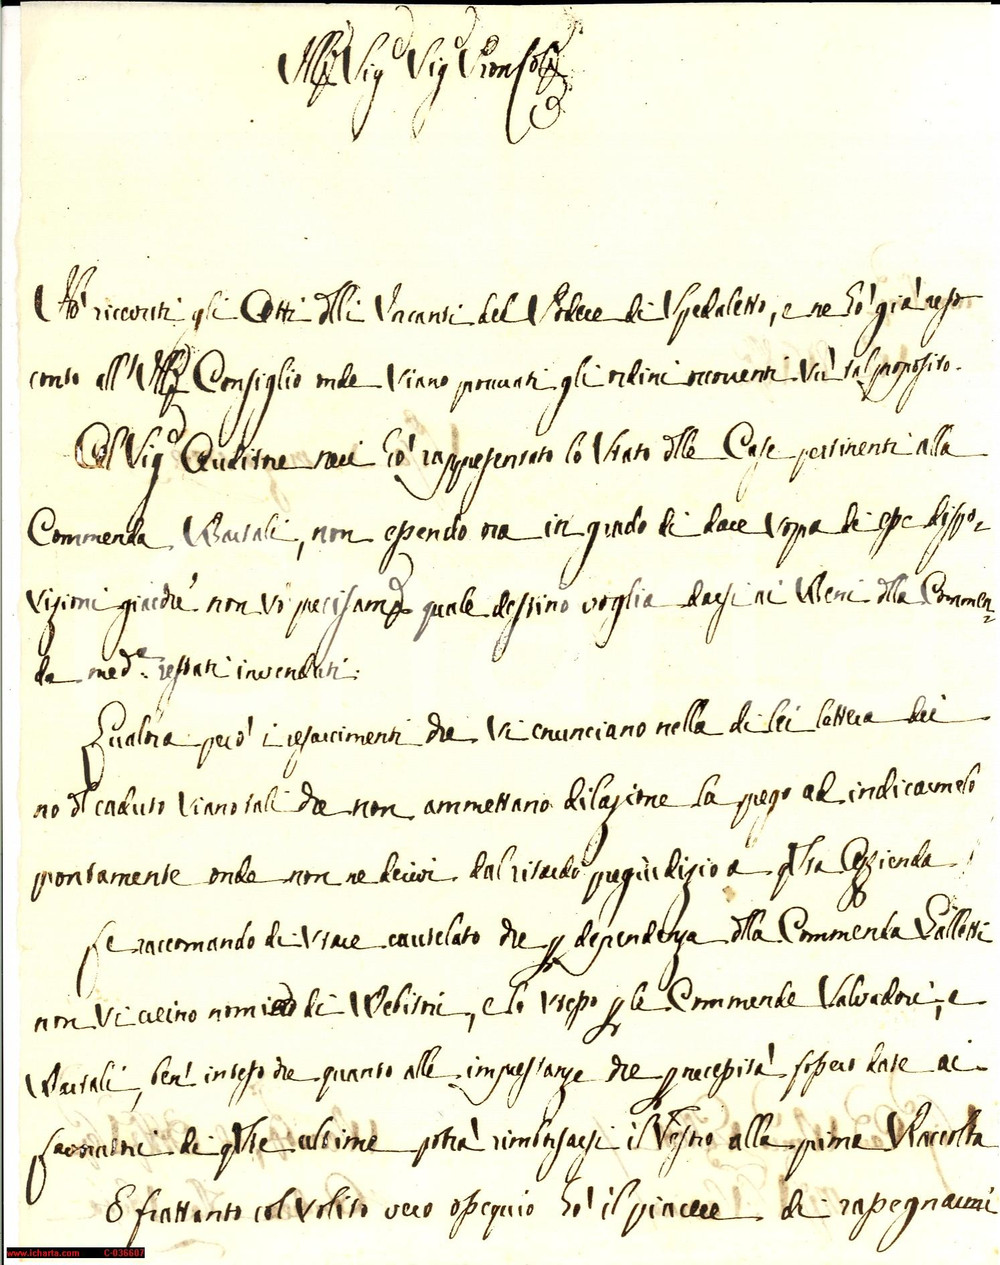 Ill.mo Sig.e Sig.e P.ron Col.mo
Hò ricevuti gli Atti d'lli Incanti del Podere di Spedaletto, e ne hò già reso
conto all'Ill.mo Consiglio onde siano provvati gli ordini occorrenti sù tal proposito.
Al Sig.e Auditore hò rappresentato lo stato d'lle Case pertinenti alla
Commenda Bartali, non essendo ora in grado di dare sopra di esse dispo-
sizioni giacchè non sò precisam.e quale destino voglia darsi ai Beni d'lla Commen-
da med.a restati invenduti.
Qualora però i resarcimenti che si enunciano nella di lei lettera dei
no d'l caduto siano tali che non ammettano dilazione la prego ad indicarmelo
prontamente onde non ne derivi dal ritardo pregiudizio a q'sta Azzienda
Le raccomando di stare cautelato che p dependenza d'lla Commenda Galletti
non si creino nomi di Debitori, e lo stesso p le Commende Salvadori, e
Bartali, ben inteso che quanto alle imprestanze che p necessità fossero date ai
Lavoratori di q'ste ultime potrà rimborsarsi il Vostro alla prima Raccolta
E frattanto col solito vero ossequio hò il piacere di rassegnarmi
www.icharta.com C-036607